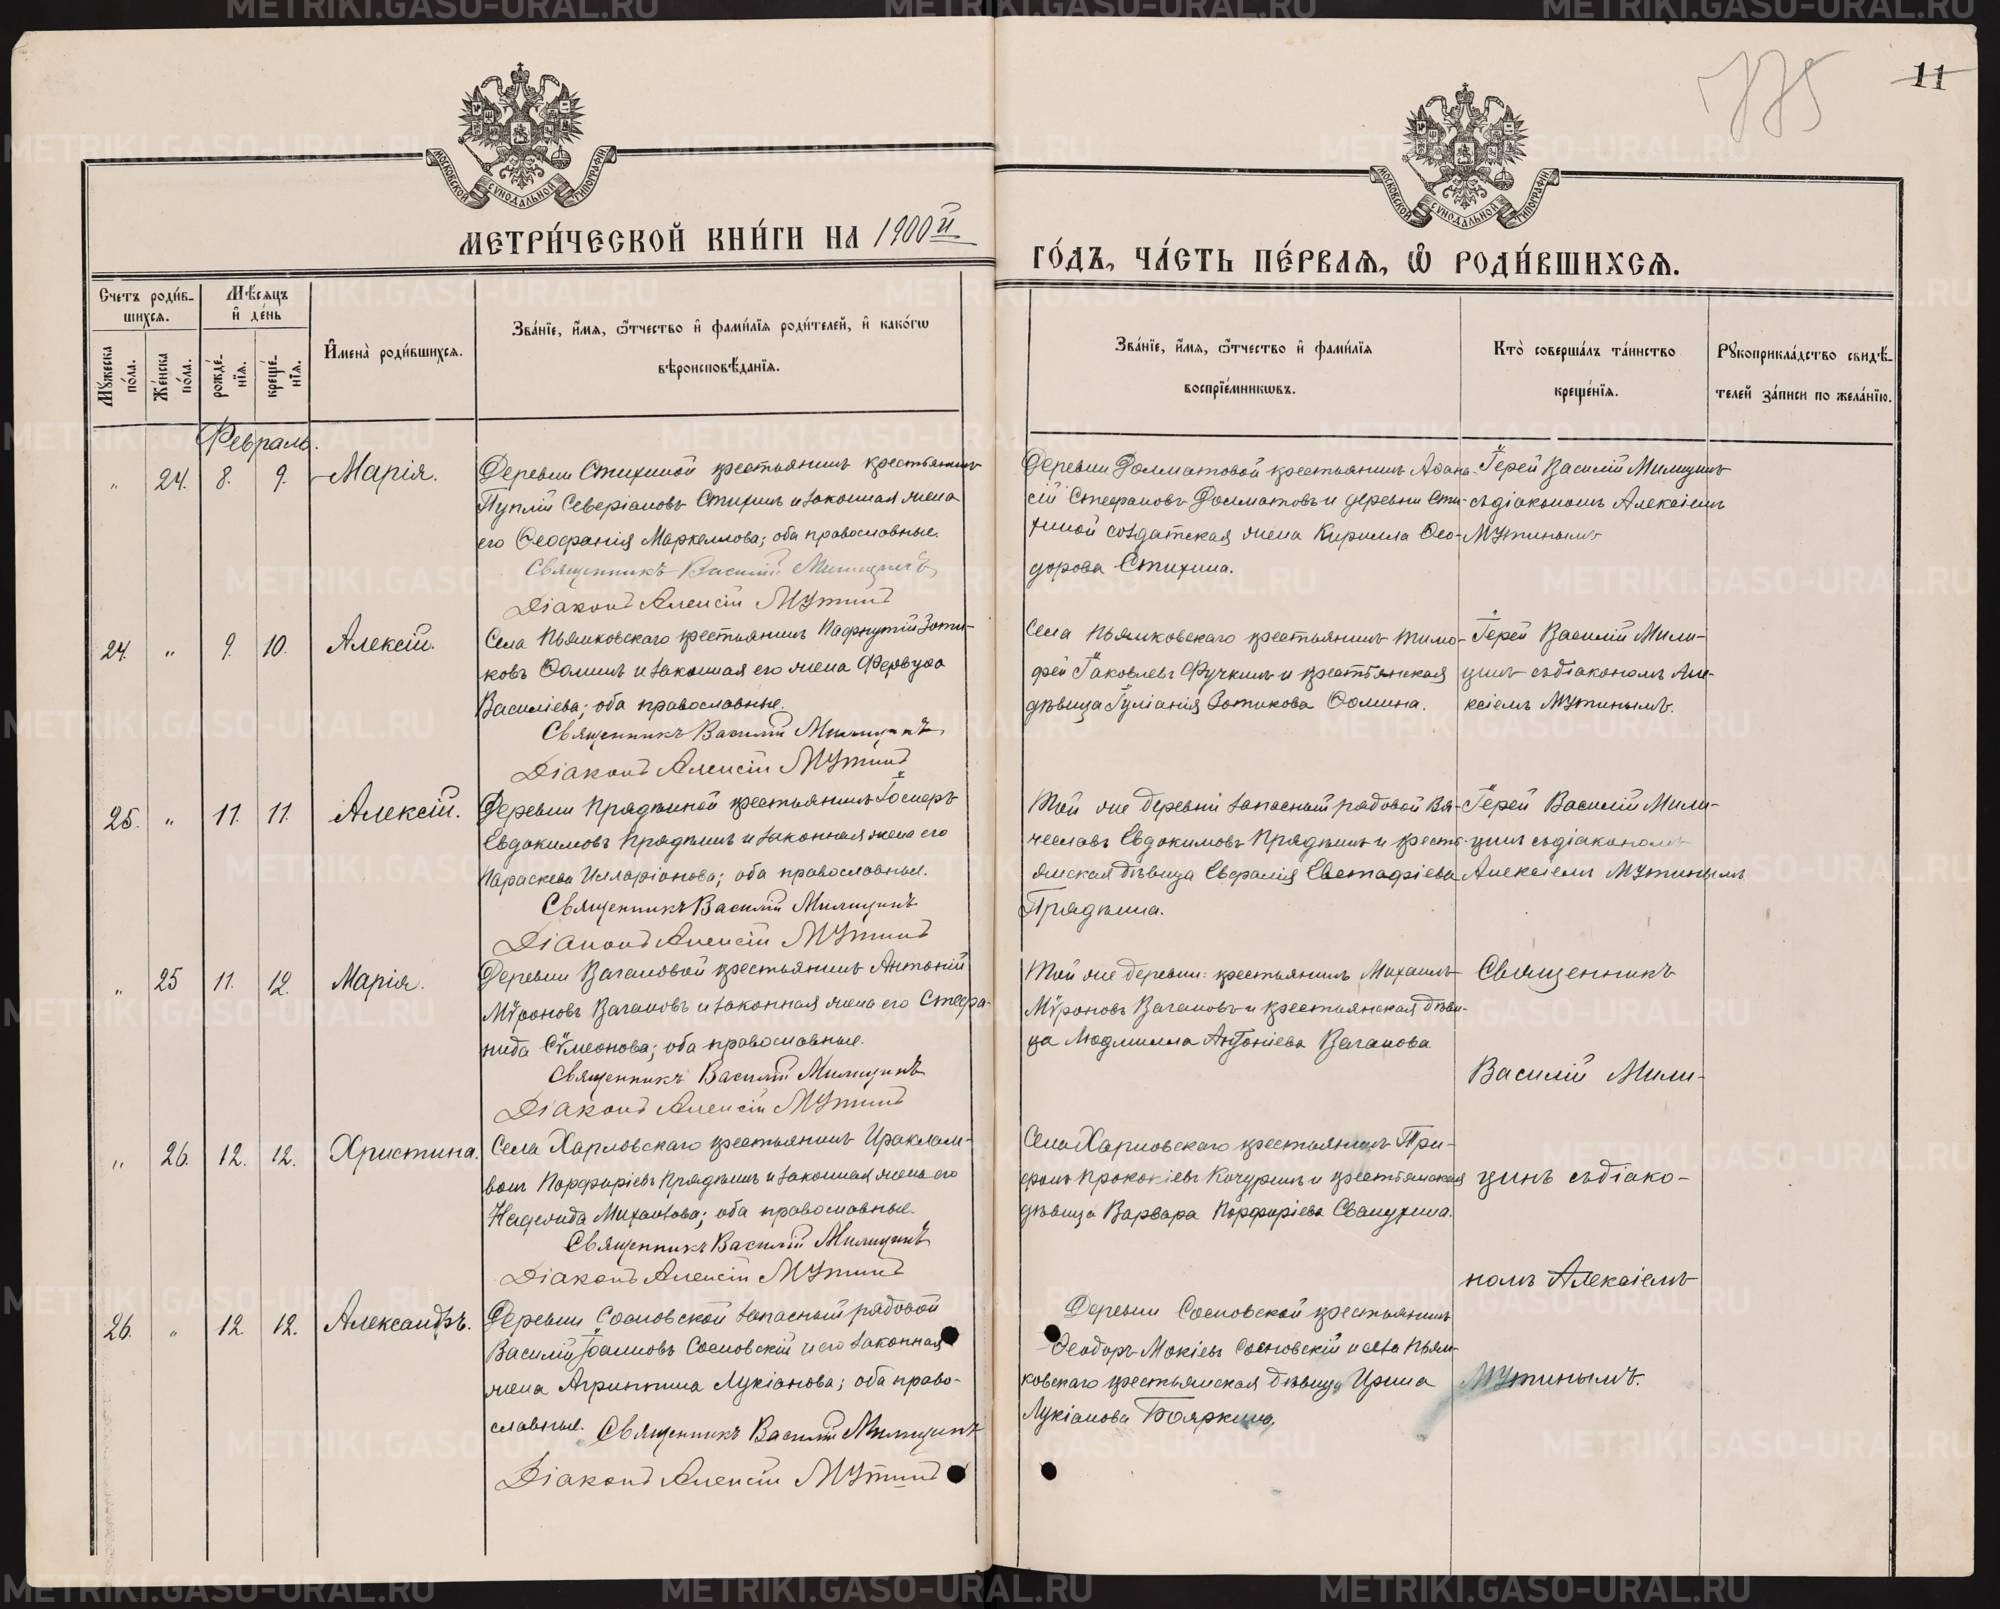 775
11
МОСКОВСКОЙ СѴНОДАЛЬНОЙ ТИПОГРАФІИ
МОСКОВСКОЙ СѴНОДАЛЬНОЙ ТИПОГРАФІИ
МЕТРИ́ЧЕСКОЙ КНИ́ГИ НА 1900й
ГО́ДЪ, ЧА́СТЬ ПЕ́РВАЯ, Ѡ҆ РОДИ́ВШИХСЯ.
Счетъ роди́в-
шихся.
Мѣ́сяцъ
и҆ де́нь
Му́жеска
по́ла.
Же́нска
по́ла.
рожде́-
нїя.
креще́-
нїя.
И҆мена̀ роди́вшихся.
Зва́нїе, и҆́мя, ѻ҆́тчество и҆ фами́лїя роди́телей, и҆ како́гѡ
вѣроисповѣ́данїя.
Зва́нїе, и҆́мя, ѻ҆́тчество и҆ фами́лїя
воспрїе́мникѡвъ.
Кто̀ соверша́лъ та́инство
креще́нїя.
Рꙋкоприкла́дство свидѣ́-
телей за́писи по жела́нїю.
Февраль.
„ 24. 8. 9. Марія.
Деревни Стихиной крестьянинъ крестьянинъ
Пуплій Северіановъ Стихинъ и законная жена
его Ѳеофанія Маркеллова; оба православные.
Священникъ Василій Милицинъ
Діаконъ Алексій Мутинъ
Деревни Долматовой крестьянинъ Афана-
сій Стефановъ Долматовъ и деревни Сти-
хиной солдатская жена Кирилла Ѳео-
дорова Стихина.
Іерей Василій Милицинъ
съ діакономъ Алексіемъ
Мутинымъ
24. „ 9. 10. Алексій.
Села Пьянковскаго крестьянинъ Пафнутій Зоти-
ковъ Ѳоминъ и законная его жена Фервуѳа
Василіева; оба православные.
Священникъ Василій Милицинъ
Діаконъ Алексій Мутинъ
Села Пьянковскаго крестьянинъ Тимо-
фей Іаковлевъ Фучкинъ и крестьянская
дѣвица Іуліанія Зотикова Ѳомина.
Іерей Василій Мили-
цинъ съ діакономъ Але-
ксіемъ Мутинымъ.
25. „ 11. 11. Алексій.
Деревни Прядѣиной крестьянинъ
Евдокимовъ Прядѣинъ и законная жена его
Параскева Илларіонова; оба православные.
Священникъ Василій Милицинъ
Діаконъ Алексій Мутинъ
Той же деревни запасный рядовой Вя-
чеславъ Евдокимовъ Прядѣинъ и кресть-
янская дѣвица Евфалія Евстафіева
Прядѣина.
Іерей Василій Мили-
цинъ съ діакономъ
Алексіемъ Мутинымъ
„ 25 11. 12. Марія.
Деревни Вагановой крестьянинъ Антоній
Мѵроновъ Вагановъ и законная жена его Стефа-
нида Сѵмеонова; оба православные.
Священникъ Василій Милицинъ
Діаконъ Алексій Мутинъ
Той же деревни: крестьянинъ Михаилъ
Мѵроновъ Вагановъ и крестьянская дѣви-
ца Людмилла Антоніева Ваганова
Священникъ
Василій Мили-
„ 26. 12. 12. Христина.
Села Харловскаго крестьянинъ Ираклам-
вонъ Порфиріевъ Прядѣинъ и законная жена его
Надежда Михайлова; оба православные.
Священникъ Василій Милицинъ
Діаконъ Алексій Мутинъ
Села Харловскаго крестьянинъ Три-
фонъ Прокопіевъ Качуринъ и крестьянская
дѣвица Варвара Порфиріева Свалухина.
цинъ съ діако-
номъ Алексіемъ
26. „ 12. 12. Александръ.
Деревни Сосновской запасный рядовой
Василій Іоанновъ Сосновскій и его законная
жена Агриппина Лукіанова; оба право-
славные. Священникъ Василій Милицинъ
Діаконъ Алексій Мутинъ
Деревни Сосновской крестьянинъ
Ѳеодоръ Мокіевъ Сосновскій и села Пьян-
ковскаго крестьянская дѣвица Ирина
Лукіанова Бояркина.
Мутинымъ.
METRIKI.GASO-URAL.RU